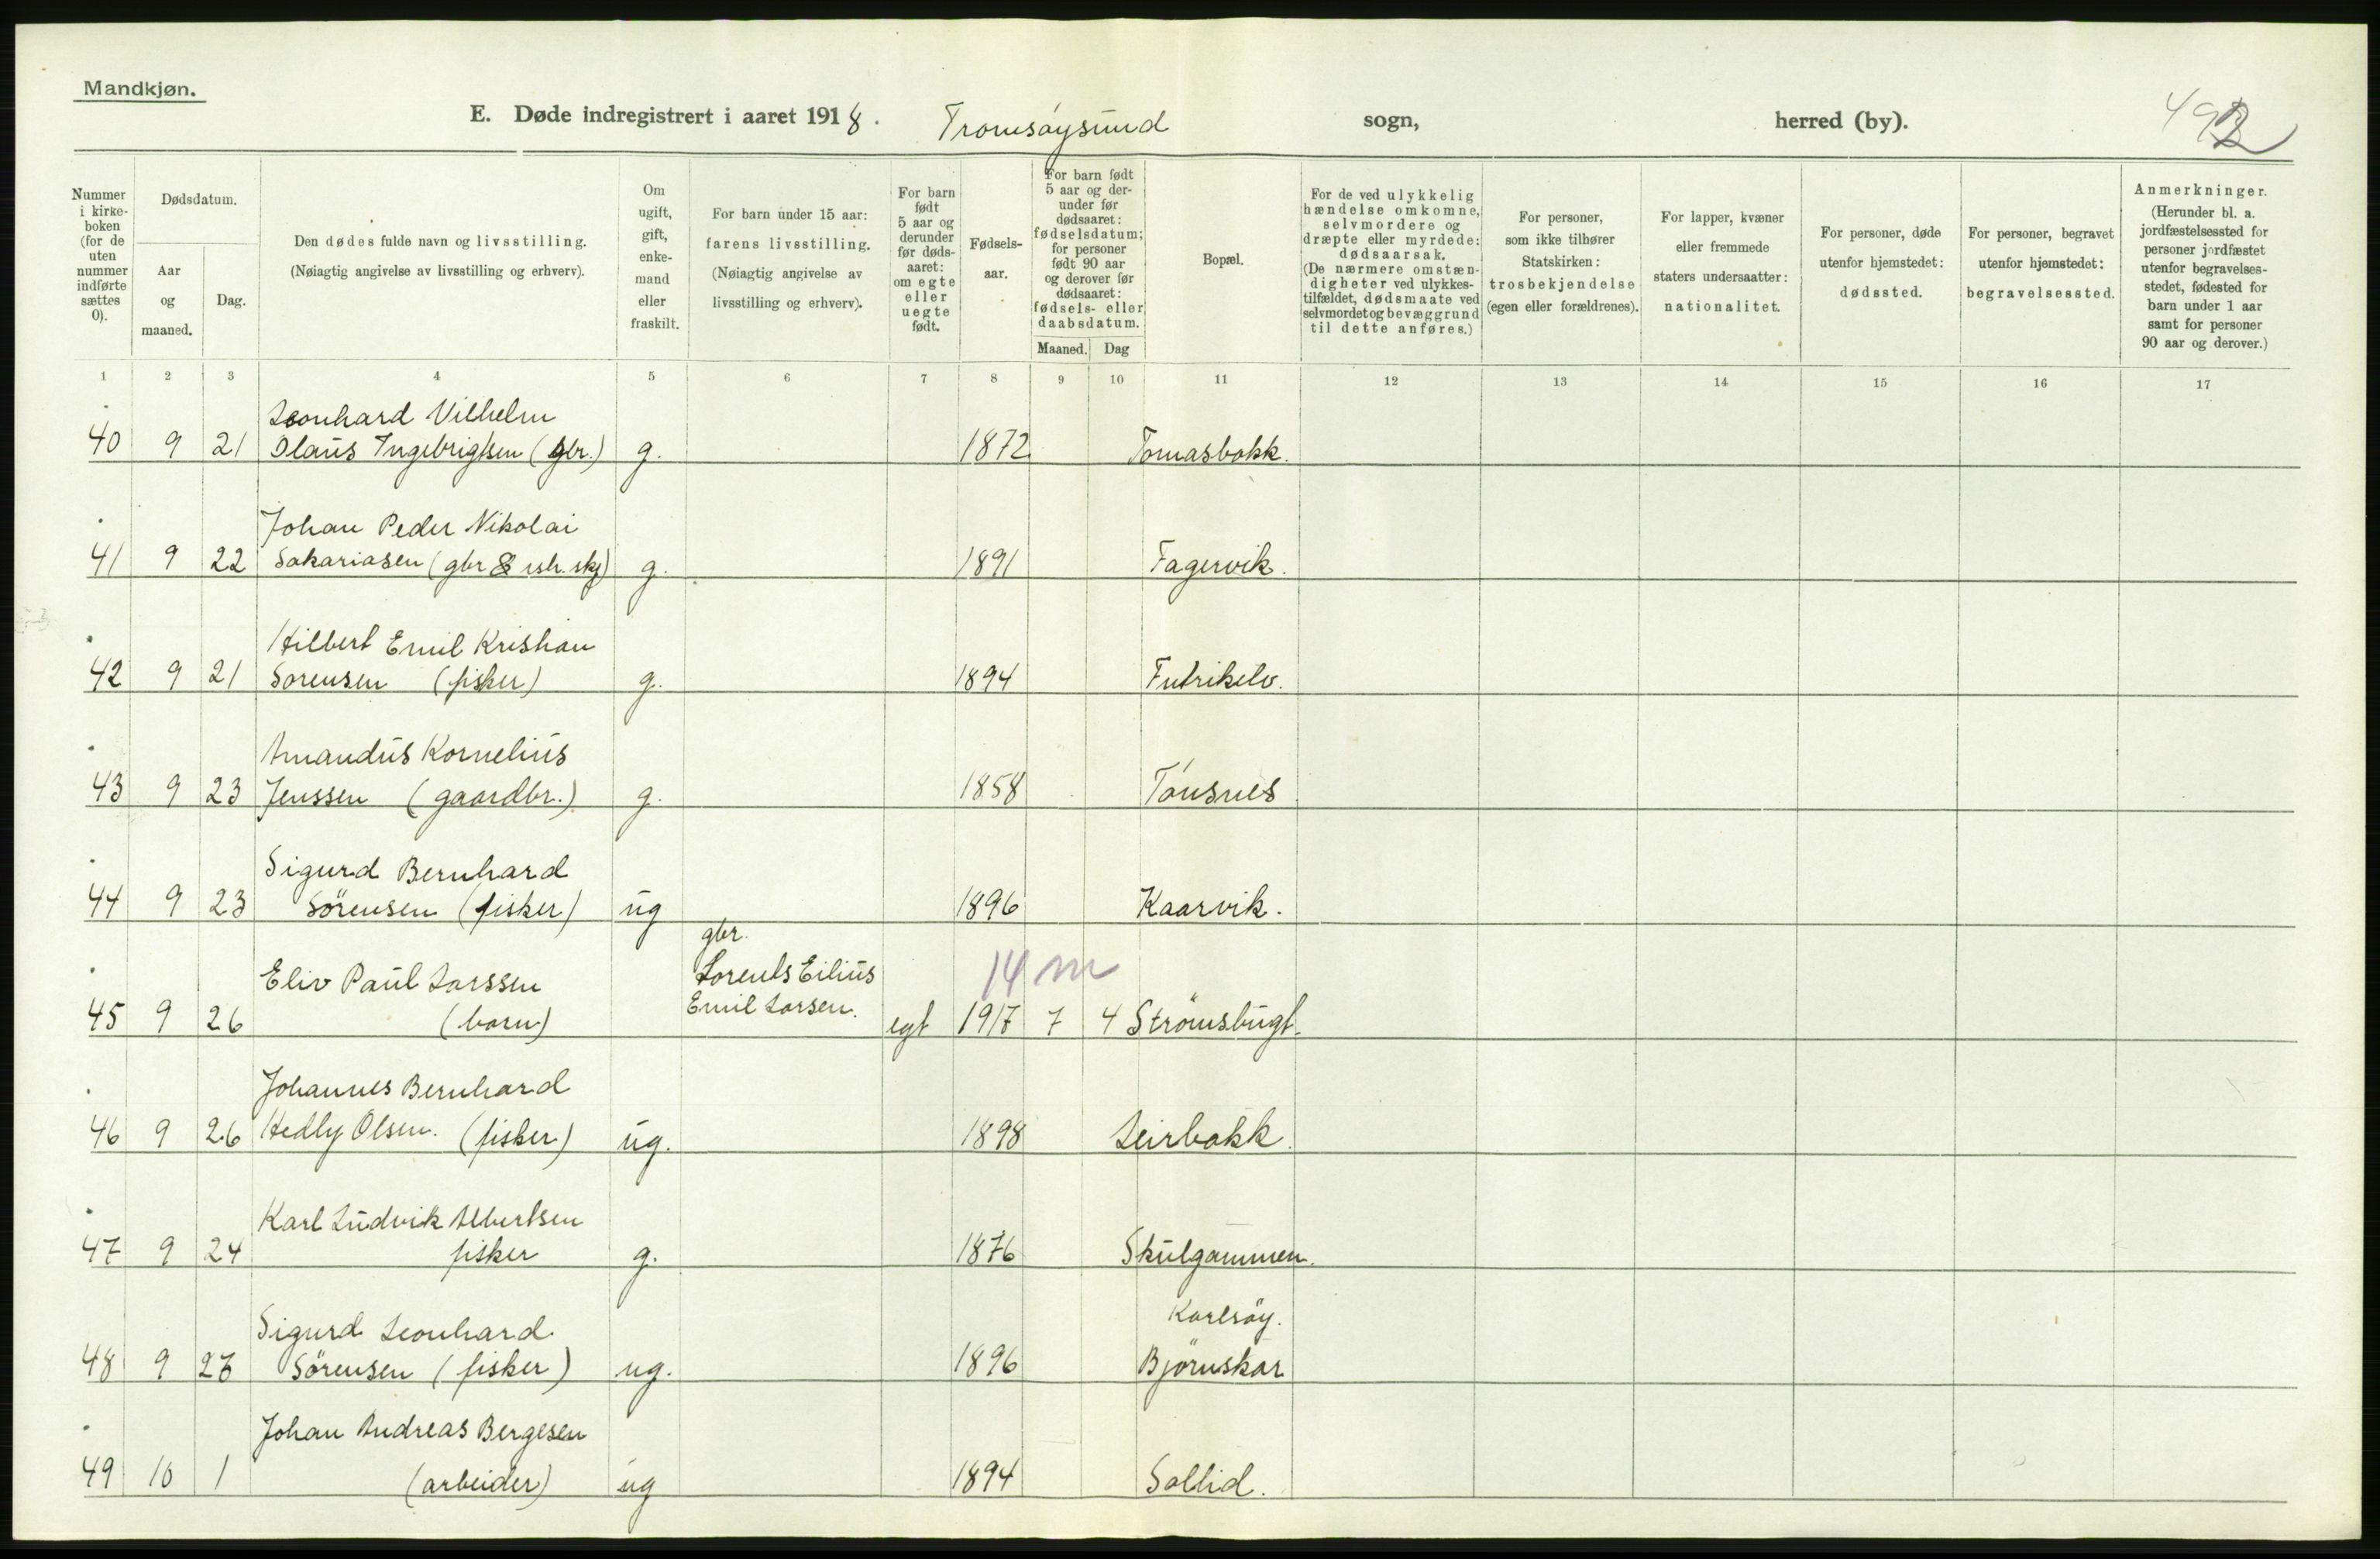 Mandkjøn.
E. Døde indregistrert i aaret 1918. Tromsøysund sogn, herred (by). 492
Nummer i kirkeboken (for de uten nummer indførte sættes 0).
Dødsdatum.
Aar og maaned.
Dag.
Den dødes fulde navn og livsstilling.
(Nøiagtig angivelse av livsstilling og erhverv).
Om ugift, gift, enkemand eller fraskilt.
For barn under 15 aar:
farens livsstilling.
(Nøiagtig angivelse av livsstilling og erhverv).
For barn født 5 aar og derunder før dødsaaret: om egte eller uegte født.
Fødselsaar.
For barn født 5 aar og derunder før dødsaaret: fødselsdatum; for personer født 90 aar og derover før dødsaaret: fødsels- eller daabsdatum.
Maaned. Dag
Bopæl.
For de ved ulykkelig hændelse omkomne, selvmordere og dræpte eller myrdede: dødsaarsak.
(De nærmere omstændigheter ved ulykkestilfældet, dødsmaate ved selvmordet og bevæggrund til dette anføres.)
For personer, som ikke tilhører Statskirken: trosbekjendelse (egen eller forældrenes).
For lapper, kvæner eller fremmede staters undersaatter: nationalitet.
For personer, døde utenfor hjemstedet: dødssted.
For personer, begravet utenfor hjemstedet: begravelsessted.
Anmerkninger.
(Herunder bl. a. jordfæstelsessted for personer jordfæstet utenfor begravelsesstedet, fødested for barn under 1 aar samt for personer 90 aar og derover.)
1 2 3 4 5 6 7 8 9 10 11 12 13 14 15 16 17
Leonhard Vilhelm
40 9 21 Olaus Ingebrigtsen (gbr.) g. 1872 Tomasbakk.
Johan Peder Nikolai
41 9 22 Sakariasen (gbr & ish. skj) g. 1891 Fagervik.
Hilbert Emil Kristian
42 9 21 Sorensen (fisker) g. 1894 Futrikelv.
Amandus Kornelius
43 9 23 Jenssen (gaardbr.) g. 1858 Tónsnes
Sigurd Bernhard
44 9 23 Sörensen (fisker) ug 1896 Kaarvik.
gbr.
Eliv Paul Larssen Lorents Eilius 14 m
45 9 26 (barn) Emil Larsen. egt 1917 7 4 Strömsbugt.
Johannes Bernhard
46 9 26 Hedly Olsen. (fisker) ug. 1898 Leirbakk.
Karl Ludvik Albertsen
47 9 24 fisker g. 1876 Skulgammen.
Sigurd Leonhard Karlsöy.
48 9 27 Sörensen (fisker) ug. 1896 Björnskar
Johan Andreas Bergesen
49 10 1 (arbeider) ug 1894 Sollid.